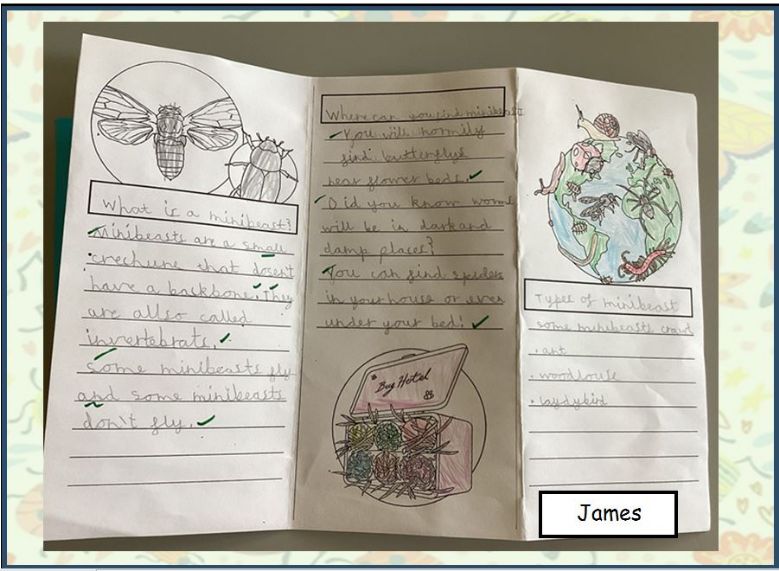 What is a minibeast?
Minibeasts are a small
crechure that dosen't
have a backbone. They
are allso called
invertebrats.
Some minibeasts fly
and some minibeasts
don't fly.
Where can you find minibeasts
You will normily
find butterflys
near flower beds.
Did you know worms
will be in dark and
damp places?
You can find spiders
in your house or even
under your bed!
Bug Hotel
Types of minibeast
some minibeasts crawl
. ant
. woodlouse
. laydybird
James